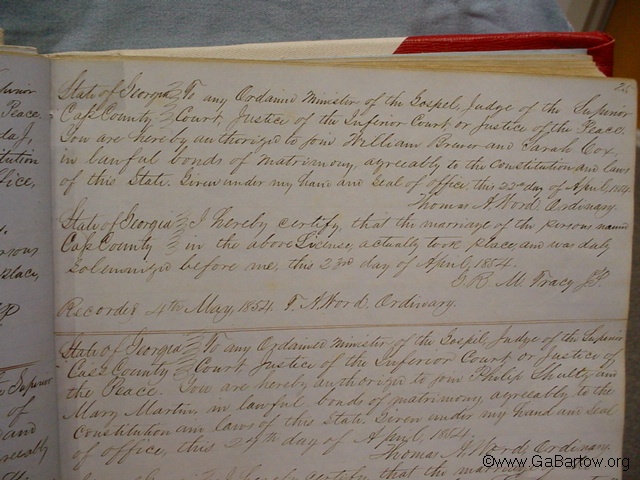 State of Georgia To any Ordained Minister of the Gospel, Judge of the Superior
Cass County Court, Justice of the Inferior Court or Justice of the Peace.
You are hereby authorized to join William Brewer and Sarah Cox,
in lawful bonds of matrimony, agreeably to the Constitution and laws
of this State. Given under my hand and seal of office, this 22nd day of April, 1854
Thomas A Word Ordinary.
State of Georgia I hereby certify, that the marriage of the persons named
Cass County in the above License, actually took place, and was duly
solemnized before me, this 23rd day of April, 1854.
R. M. Tracy J.P.
Recorded 4th May, 1854. T. A Word Ordinary.
State of Georgia To any Ordained Minister of the Gospel, Judge of the Superior
Cass County Court Justice of the Inferior Court or Justice of
the Peace. You are hereby authorized to join Philip and
Mary Martin, in lawful bonds of matrimony, agreeably to the
Constitution and laws of this State. Given under my hand and seal
of office, this 24th day of April, 1854.
Thomas A Word Ordinary
I hereby certify that the
Peace.
office,
place,
Superior
of
and
©www.GaBartow.org